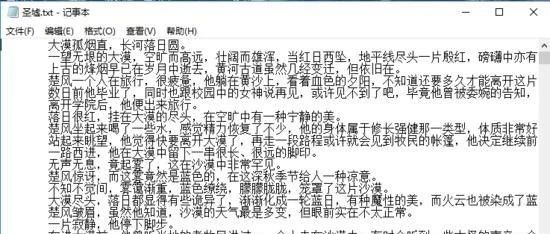 圣墟.txt - 记事本
文件(F) 编辑(E) 格式(O) 查看(V) 帮助(H)
大漠孤烟直，长河落日圆。
一望无垠的大漠，空旷而高远，壮阔而雄浑，当红日西坠，地平线尽头一片殷红，磅礴中亦有
上古的烽烟早已在岁月中逝去，黄河古道虽然几经变迁，但依旧在。
楚风一个人在旅行，很疲惫，他躺在黄沙上，看着血色的夕阳，不知道还要多久才能离开这片
数日前他毕业了，同时也跟校园中的女神说再见，或许见不到了吧，毕竟他曾被委婉的告知，
离开学院后，他便出来旅行。
落日很红，挂在大漠的尽头，在空旷中有一种宁静的美。
楚风坐起来喝了一些水，感觉精力恢复了不少，他的身体属于修长强健那一类型，体质非常好
站起来眺望，他觉得快要离开大漠了，再走一段路程或许就会见到牧民的帐篷，他决定继续前
一路西进，他在大漠中留下一串很长、很远的脚印。
无声无息，竟起雾了，这在沙漠中非常罕见。
楚风惊讶，而这雾竟然是蓝色的，在这深秋季节给人一种凉意。
不知不觉间，雾霭渐重，蓝色缭绕，朦朦胧胧，笼罩了这片沙漠。
大漠尽头，落日都显得有些诡异了，渐渐化成一轮蓝日，有种魔性的美，而火云也被染成了蓝
楚风皱眉，虽然他知道，沙漠的天气最是多变，但眼前实在不太正常。
一片寂静，他停下脚步。